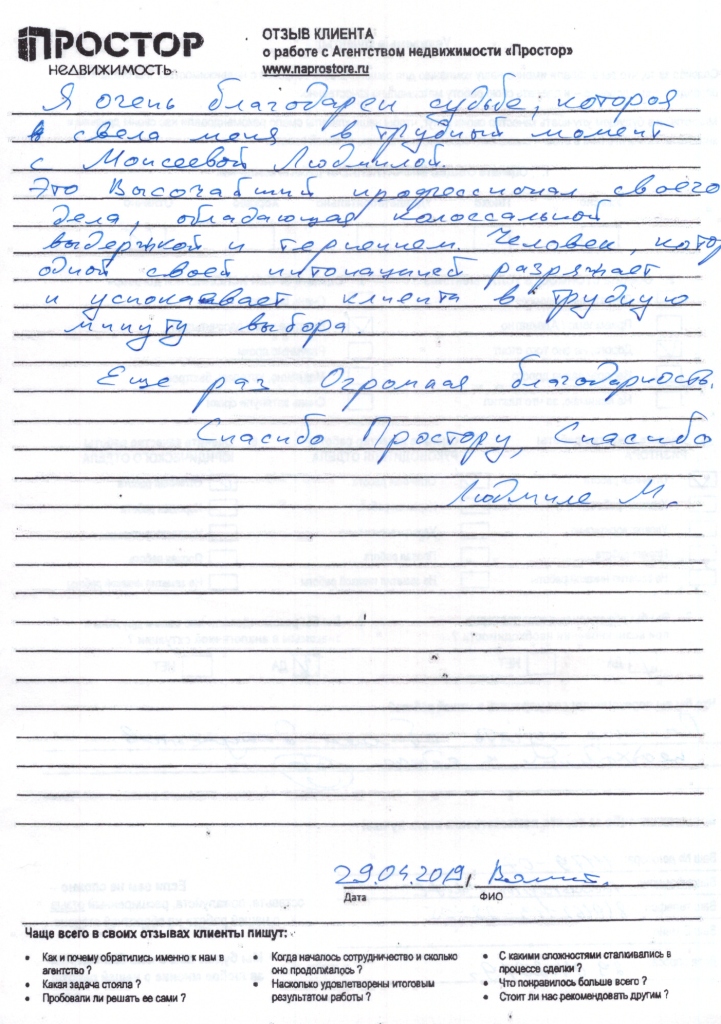 ПРОСТОР
НЕДВИЖИМОСТЬ
ОТЗЫВ КЛИЕНТА
о работе с Агентством недвижимости «Простор»
www.naprostore.ru
Я очень благодарен судьбе, которая
свела меня в трудный момент
с Моисеевой Людмилой.
Это Высочайший профессионал своего
дела, обладающая колоссальной
выдержкой и терпением. Человек, котор
одной своей интонацией разряжает
и успокаивает клиента в трудную
минуту выбора.
Еще раз Огромная благодарность.
Спасибо Простору, Спасибо
Людмиле М.
29.04.2019,
Дата
ФИО
Чаще всего в своих отзывах клиенты пишут:
• Как и почему обратились именно к нам в агентство ?
• Какая задача стояла ?
• Пробовали ли решать ее сами ?
• Когда началось сотрудничество и сколько оно продолжалось ?
• Насколько удовлетворены итоговым результатом работы ?
• С какими сложностями сталкивались в процессе сделки ?
• Что понравилось больше всего ?
• Стоит ли нас рекомендовать другим ?